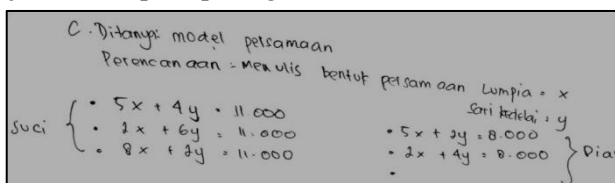 C. Ditanya: model persamaan
Perencanaan = Menulis bentuk persamaan Lumpia = x
Sari kedelai = y
Suci { • 5x + 4y = 11.000
• 2x + 6y = 11.000
• 8x + 2y = 11.000
• 5x + 2y = 8.000
• 2x + 4y = 8.000 } Dia
•